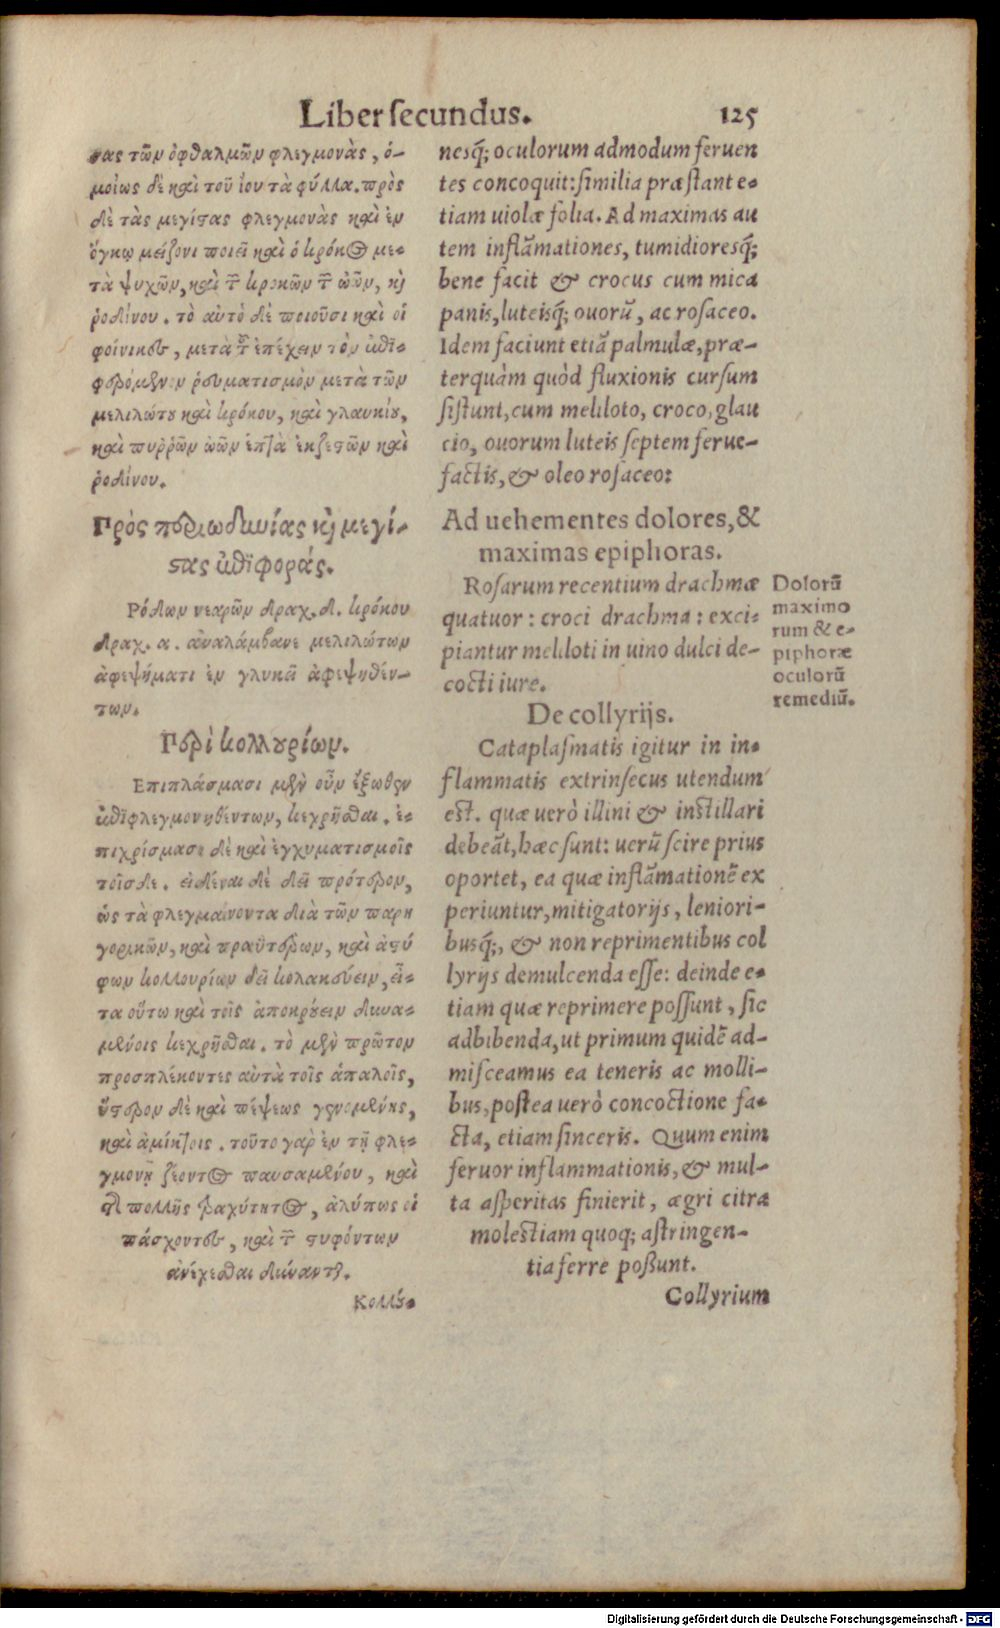 Liber secundus. 125
σας τῶν ὀφθαλμῶν φλεγμονὰς, ὁ-
μοίως δὲ καὶ τοῦ ἴου τὰ φύλλα. πρὸς
δὲ τὰς μεγίστας φλεγμονὰς καὶ ἐν
ὄγκῳ μείζονι ποιεῖ καὶ ὁ κρόκος με-
τὰ ψυχῶν, καὶ τ͂ κροκῶν τ͂ ὠῶν, κ̀
ῥοδίνου. τὸ αὐτὸ δὲ ποιοῦσι καὶ οἱ
φοίνικες, μετὰ τ͂ ἐπέχειν τὸν ἐπι-
φερόμενον ῥευματισμὸν μετὰ τῶν
μελιλώτου καὶ κρόκου, καὶ γλαυκίου,
καὶ πυῤῥῶν ὠῶν ἑπτὰ ἐκζεστῶν καὶ
ῥοδίνου.
Πρὸς περιωδυνίας κ̀ μεγί-
στας ἐπιφοράς.
Ρόδων νεαρῶν δραχ. δ. κρόκου
δραχ. α. ἀναλάμβανε μελιλώτων
ἀφεψήματι ἐν γλυκεῖ ἀφεψηθέν-
των.
Περὶ κολλουρίων.
Επιπλάσμασι μὲν οὖν ἔξωθεν
ἐπιφλεγμονηθέντων, κεχρῆσθαι. ἐ-
πιχρίσμασι δὲ καὶ ἐγχυματισμοῖς
τοῖσδε. εἰδέναι δὲ δεῖ πρότερον,
ὡς τὰ φλεγμαίνοντα διὰ τῶν παρη
γορικῶν, καὶ πραϋτέρων, καὶ ἀστύ
φων κολλουρίων δεῖ κολακεύειν, εἶ-
τα οὕτω καὶ τοῖς ἀποκρούειν δυνα-
μένοις κεχρῆσθαι. τὸ μὲν πρῶτον
προσπλέκοντες αὐτὰ τοῖς ἁπαλοῖς,
ὕστερον δὲ καὶ πέψεως γενομένης,
καὶ ἀμίκτοις. τοῦτο γὰρ ἐν τῇ φλε-
γμονῇ ζέοντος παυσαμένου, καὶ
τ͂ πολλῆς τραχύτητος, ἀλύπως οἱ
πάσχοντες, καὶ τ͂ στυφόντων
ἀνέχεσθαι δύνανται.
Κολλού-
nesq́; oculorum admodum feruen
tes concoquit: similia præstant e-
tiam uiolæ folia. Ad maximas au
tem inflãmationes, tumidioresq́;
bene facit & crocus cum mica
panis, luteisq́; ouorũ, ac rosaceo.
Idem faciunt etiã palmulæ, præ-
terquàm quòd fluxionis cursum
sistunt, cum meliloto, croco, glau
cio, ouorum luteis septem ferue-
factis, & oleo rosaceo:
Ad uehementes dolores, &
maximas epiphoras.
Rosarum recentium drachmæ
quatuor: croci drachma: exci-
piantur meliloti in uino dulci de-
cocti iure.
De collyrijs.
Cataplasmatis igitur in in-
flammatis extrinsecus utendum
est. quæ uerò illini & instillari
debeãt, hæc sunt: uerũ scire prius
oportet, ea quæ inflãmationẽ ex
periuntur, mitigatorijs, leniori-
busq́;, & non reprimentibus col
lyrijs demulcenda esse: deinde e-
tiam quæ reprimere possunt, sic
adhibenda, ut primum quidẽ ad-
misceamus ea teneris ac molli-
bus, postea uerò concoctione fa-
cta, etiam sinceris. Quum enim
feruor inflammationis, & mul-
ta asperitas finierit, ægri citra
molestiam quoq; astringen-
tia ferre possunt.
Collyrium
Dolorũ
maximo
rum & e-
piphoræ
oculorũ
remediũ.
Digitalisierung gefördert durch die Deutsche Forschungsgemeinschaft - DFG